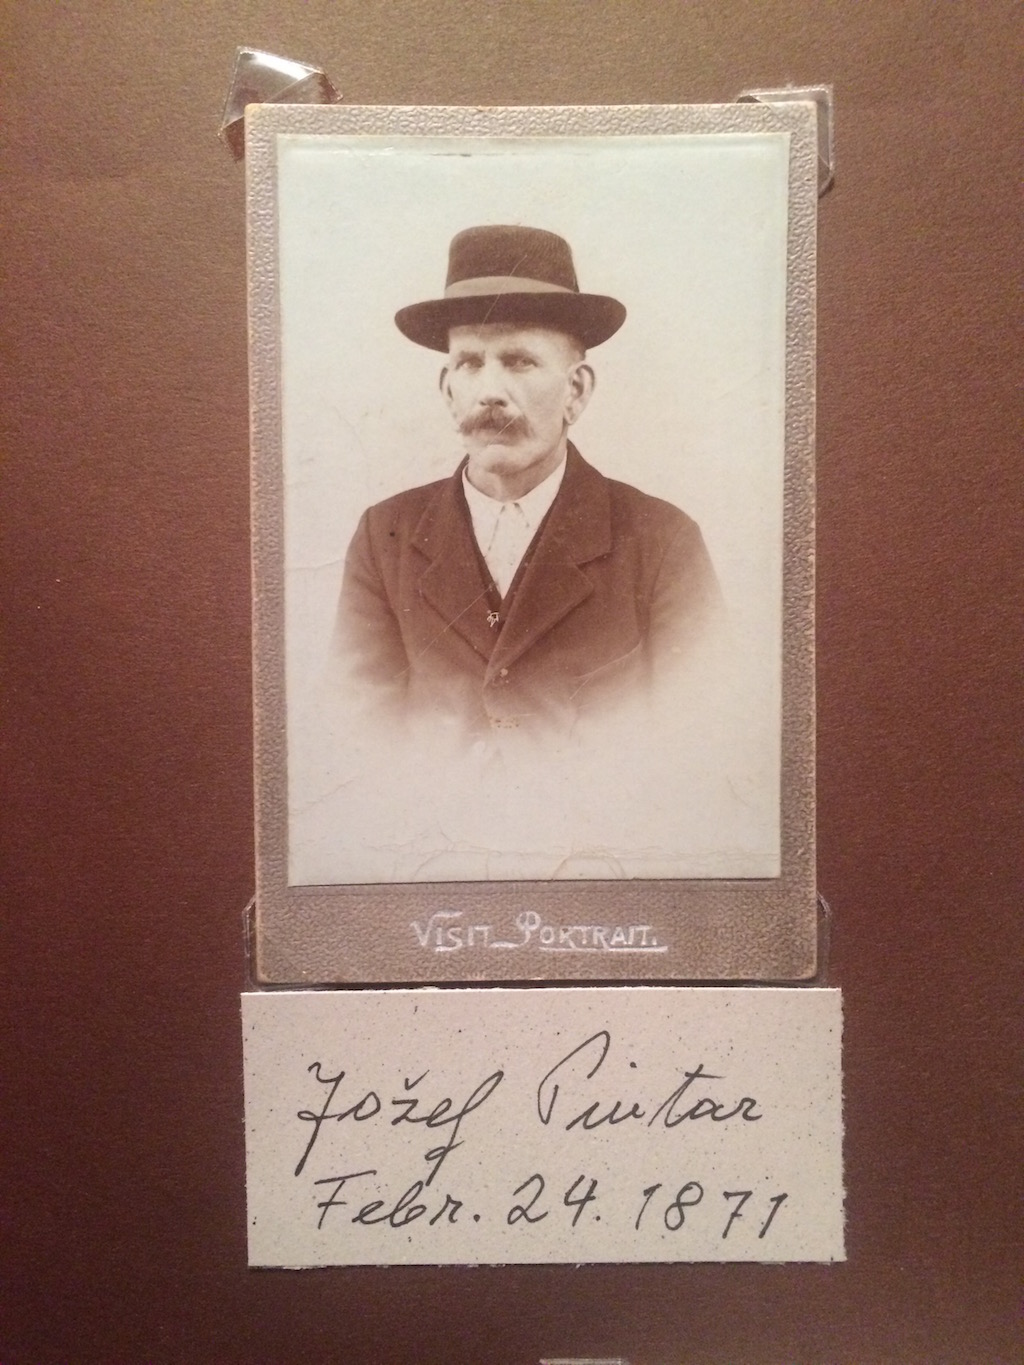 VISIT PORTRAIT.
Jožef Pintar
Febr. 24. 1871